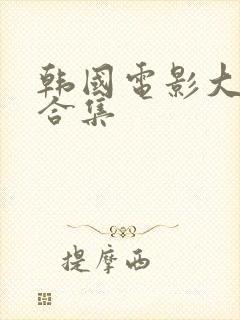 韩國電影大
合集
提摩西